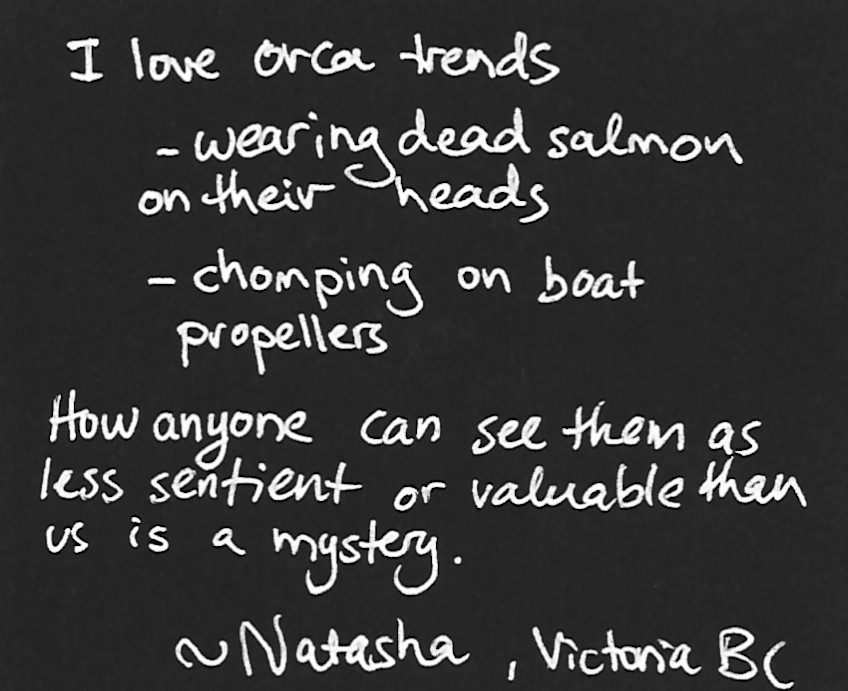 I love orca trends
- wearing dead salmon
on their heads
- chomping on boat
propellers
How anyone can see them as
less sentient or valuable than
us is a mystery.
~Natasha, Victoria BC